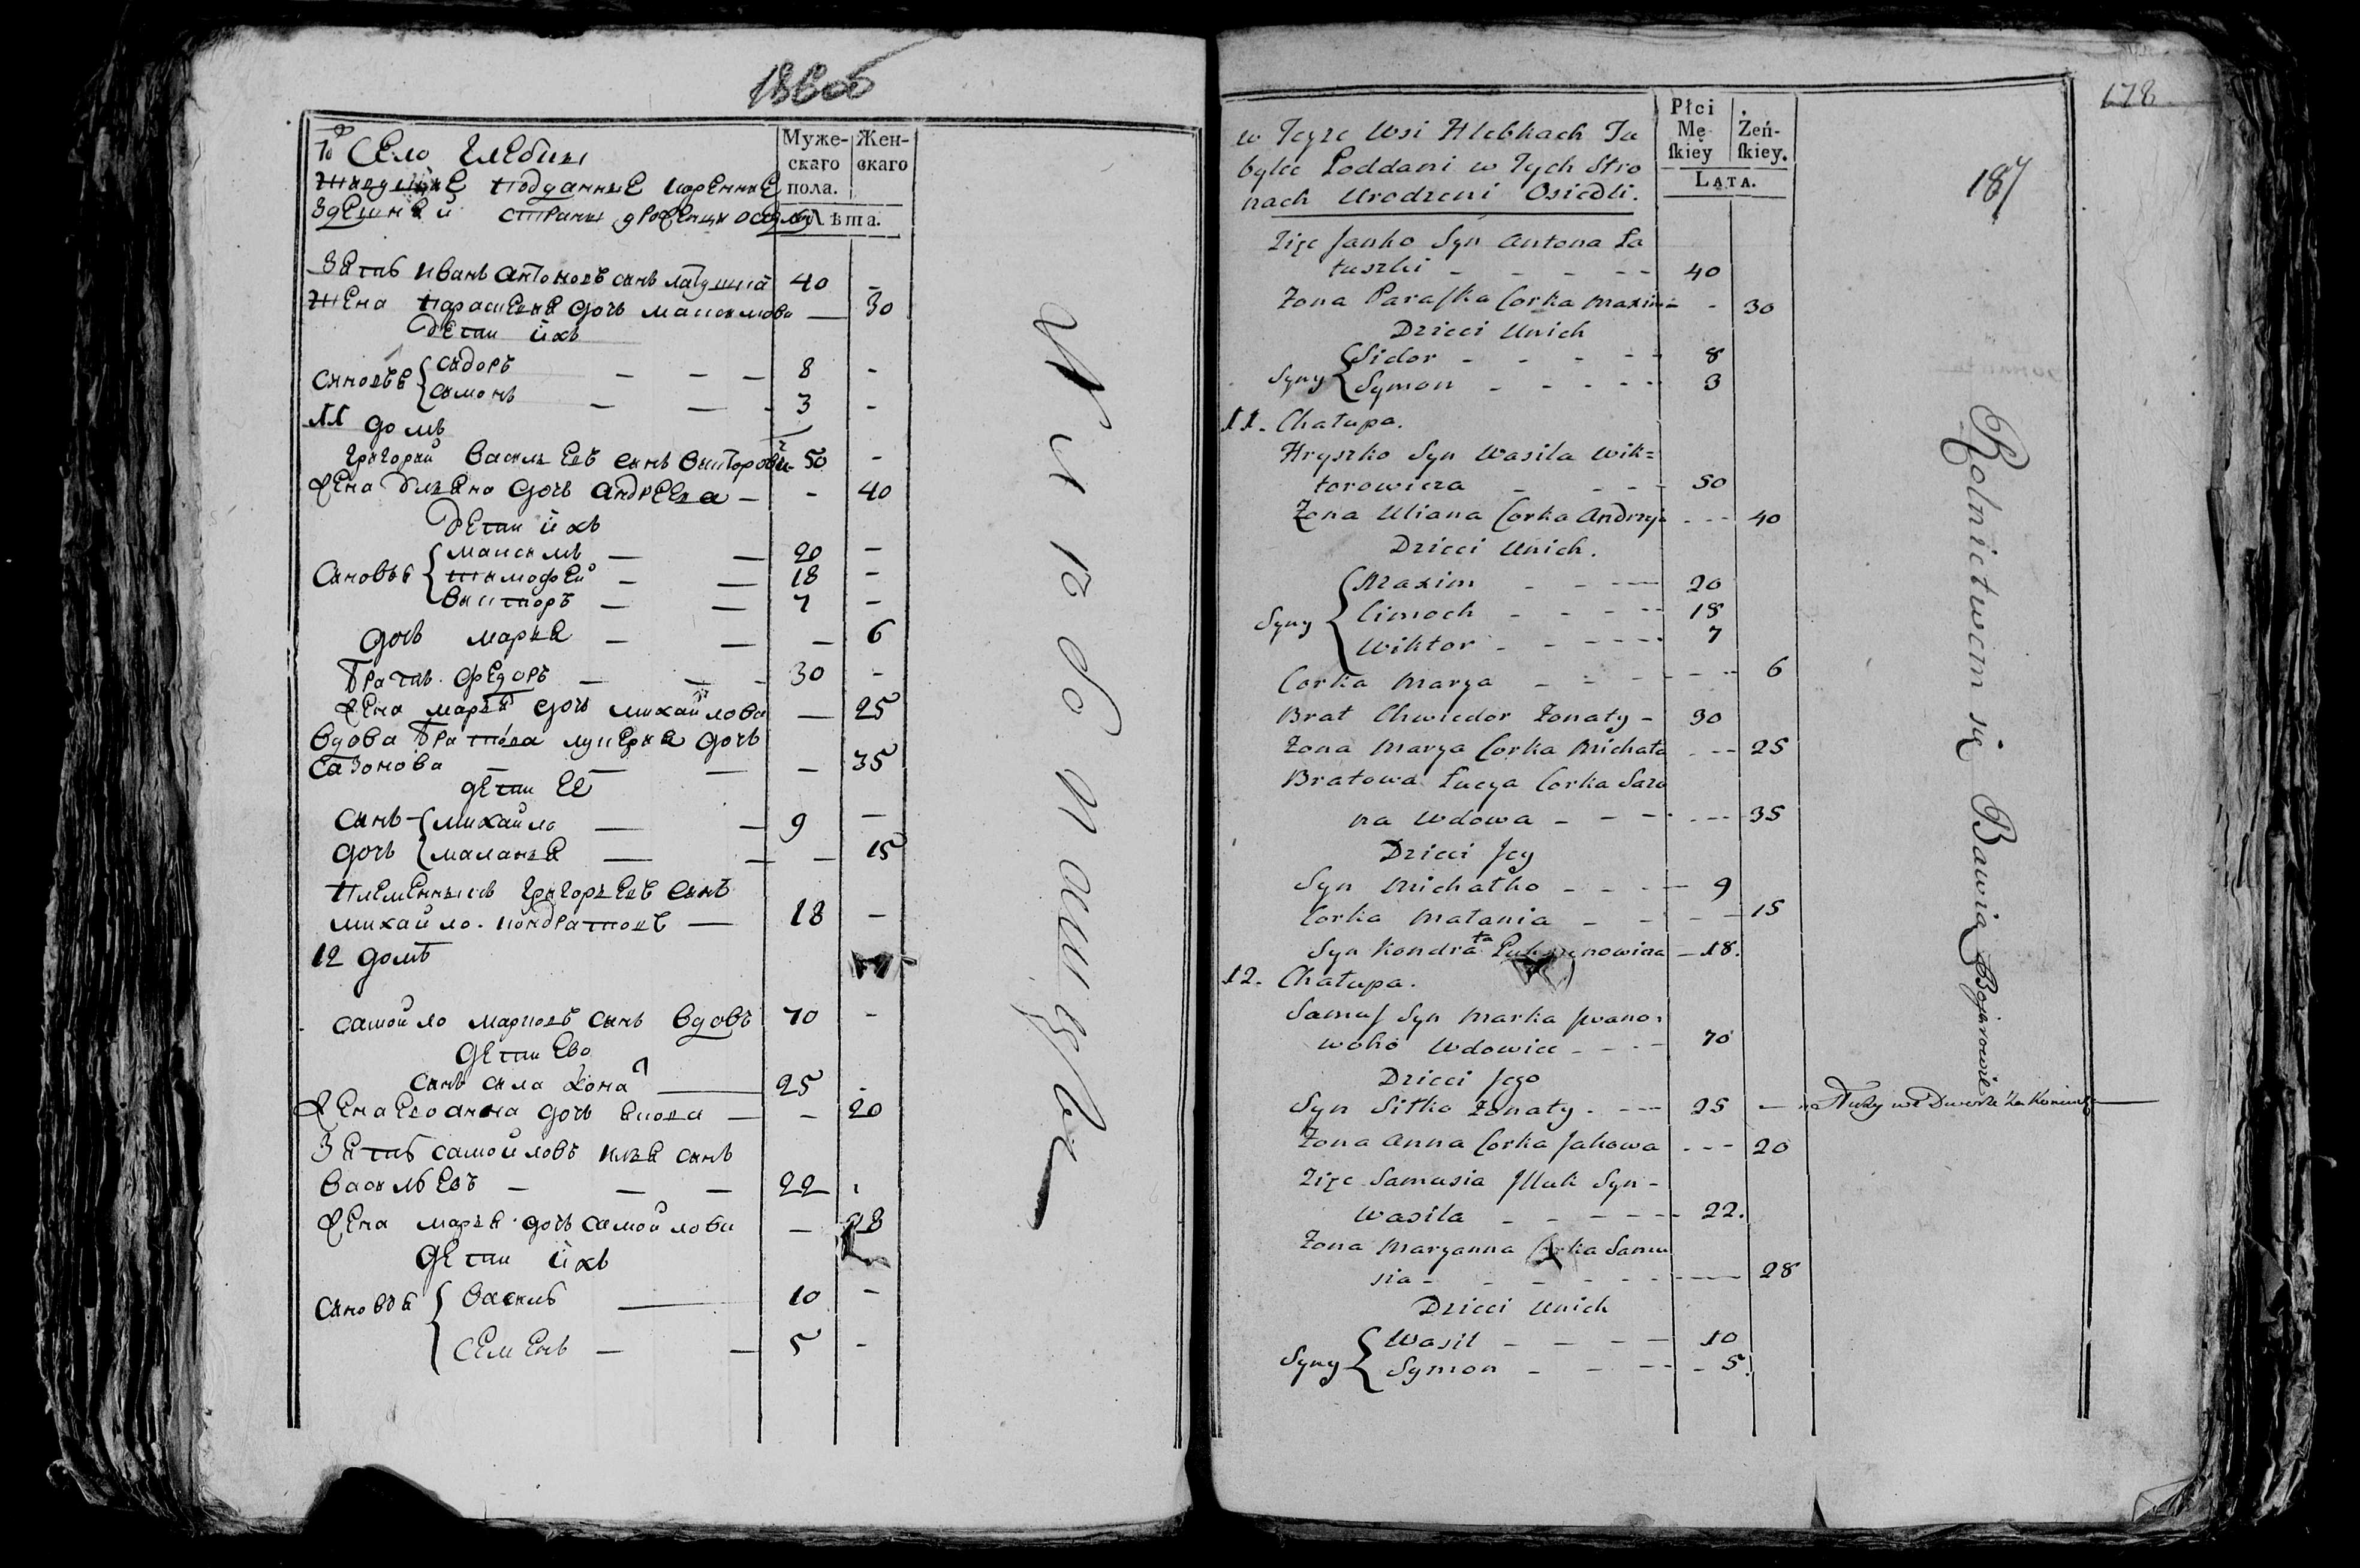 186 об
То Село Глебки
подданные коренные
здешней страны уроженцы оседлы
Муже-
скаго
пола.
Жен-
скаго
Лѣта.
Зять иванъ антоновъ сынъ латушка 40 -
жена парасковья дочь максимова — 30
дети ихъ
сыновья { сидоръ — — — 8 -
симонъ — — - 3 -
11 домъ
григорий васильевъ сынъ викторовичъ 50 -
жена ульяна дочь андреева — - 40
дети ихъ
сыновья { максимъ — — 20 —
тимофей — — 18 -
викторъ — — 7 —
дочь марья — — — 6
братъ федоръ — — - 30 -
жена марья дочь михайлова — 25
вдова братова лукерья дочь
сазонова — — — — 35
дети ее
сынъ { михайло — — 9 —
дочь { маланья — — — 15
племянникъ григорьевъ сынъ
михайло кондратовъ — 18 —
12 домъ
самойло марковъ сынъ вдовъ 70 -
дети ево
сынъ сила 25 -
жена ево анна дочь — - 20
Зять самойловъ илья сынъ
васильевъ — — — 22
жена марья дочь самойлова — 28
дети ихъ
сыновья { василь — 10 —
семенъ — — 5 -
178
187
w Teyże Wsi Hlebkach Tu
bylce Poddani w Tych Stro
nach Urodzeni Osiedli.
Płci
Mę-
skiey
Żeń-
skiey.
LATA.
Zięc Janko Syn Antona Ła
tuszki - - - - - 40
Zona Paraska Corka Maxima - - 30
Dzieci Unich
Syny { Sidor - - - - - 8
Symon - - - - - 3
11. Chałupa.
Hryszko Syn Wasila Wik=
torowicza - - - - 50
Zona Uliana Corka Andrzeja - - - 40
Dzieci Unich.
Syny { Maxim - - — 20
Cimoch - - - - - 18
Wiktor - - - - - 7
Corka Marya - - - - - - 6
Brat Chwiedor Zonaty - 30
Zona Marya Corka Michała - - - 25
Bratowa Łucya Corka Sazo
na Wdowa - - - - - - 35
Dzieci Jey
Syn Michałko - - - - 9
Corka Małania - - - - 15
Syn Kondrata - 18.
12. Chałupa.
Samus Syn Marka Jwano=
woho Wdowiec - - - - 70
Dzieci Jego
Syn Sitko Zonaty - - - - 25 —
Zona Anna Corka Jakowa - - - 20
Zięc Samusia Jlluk Syn -
Wasila - - - - - - 22.
Zona Maryanna Corka Samu
sia - - - - - - — 28
Dzieci Unich
Syny { Wasil - - - — 10
Symon - - - - - 5.
Rolnictwem się Bawią Bojarowie
Służy we Dworze za